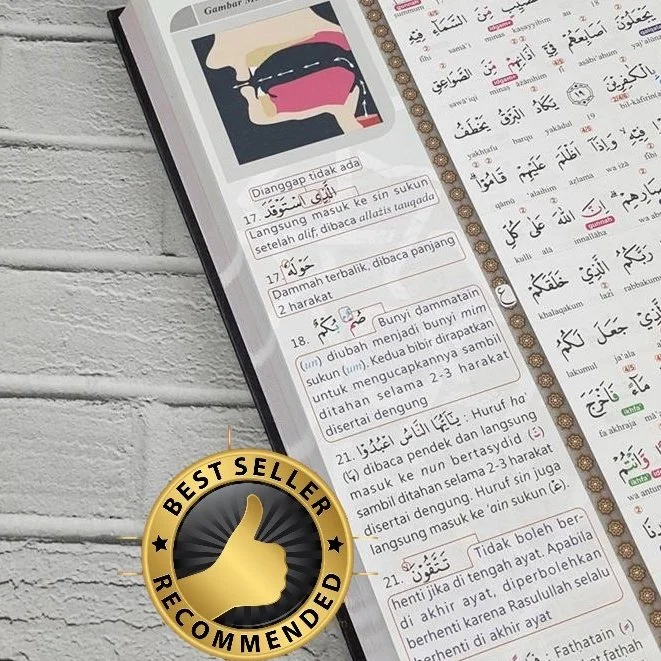 Gambar
Dianggap tidak ada
17. الَّذِى اسْتَوْقَدَ
Langsung masuk ke sin sukun
setelah alif; dibaca allażis tauqada
17. حَوْلَهٗ
Dammah terbalik, dibaca panjang
2 harakat
18. صُمٌّۢ بُكْمٌ Bunyi dammatain
(un) diubah menjadi bunyi mim
sukun (um). Kedua bibir dirapatkan
untuk mengucapkannya sambil
ditahan selama 2-3 harakat
disertai dengung
21. يٰٓاَيُّهَا النَّاسُ اعْبُدُوْا : Huruf ha'
dibaca pendek dan langsung
masuk ke nun bertasydid (نّ)
sambil ditahan selama 2-3 harakat
disertai dengung. Huruf sin juga
langsung masuk ke 'ain sukun (عْ).
21. تَتَّقُوْنَ Tidak boleh ber-
henti jika di tengah ayat. Apabila
di akhir ayat, diperbolehkan
berhenti karena Rasulullah selalu
berhenti di akhir ayat
Fathatain
fathah
السَّمَاۤءِ فِيْهِ
sama'i
minas
kasayyibim
au
18
gunnah
يَجْعَلُوْنَ اَصَابِعَهُمْ فِيْٓ اٰذَانِهِمْ مِّنَ الصَّوَاعِقِ
sawa'iqi
minas
āzānihim
fī
asābi'ahum
idgam
بِالْكٰفِرِيْنَ ١٩ يَكَادُ الْبَرْقُ يَخْطَفُ
yakhtafu
barqu
yakādul
19
bil-kāfirīn
فِيْهِ وَاِذَآ اَظْلَمَ عَلَيْهِمْ قَامُوْا
qāmū
'alaihim
azlama
wa iżā
fīhi
اِنَّ اللّٰهَ عَلٰى كُلِّ
kulli
alā
innallāha
gunnah
رَبَّكُمُ الَّذِيْ خَلَقَكُمْ
khalaqakum
lazī
rabbakumul
جَعَلَ لَكُمُ
lakumul
ja'ala
مَاۤءً فَاَخْرَجَ
fa akhraja
ikhfa'
وَاَنْتُمْ
wa antum
ikhfa'
BEST SELLER
RECOMMENDED